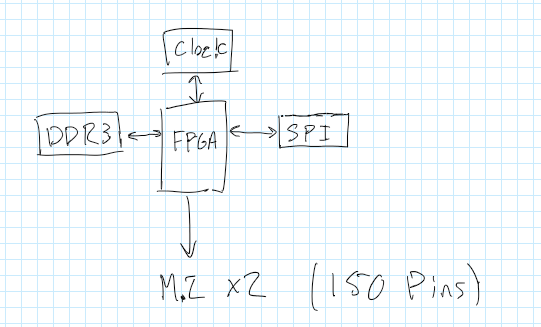 Clock
DDR3
FPGA
SPI
M.2 x2 (150 Pins)